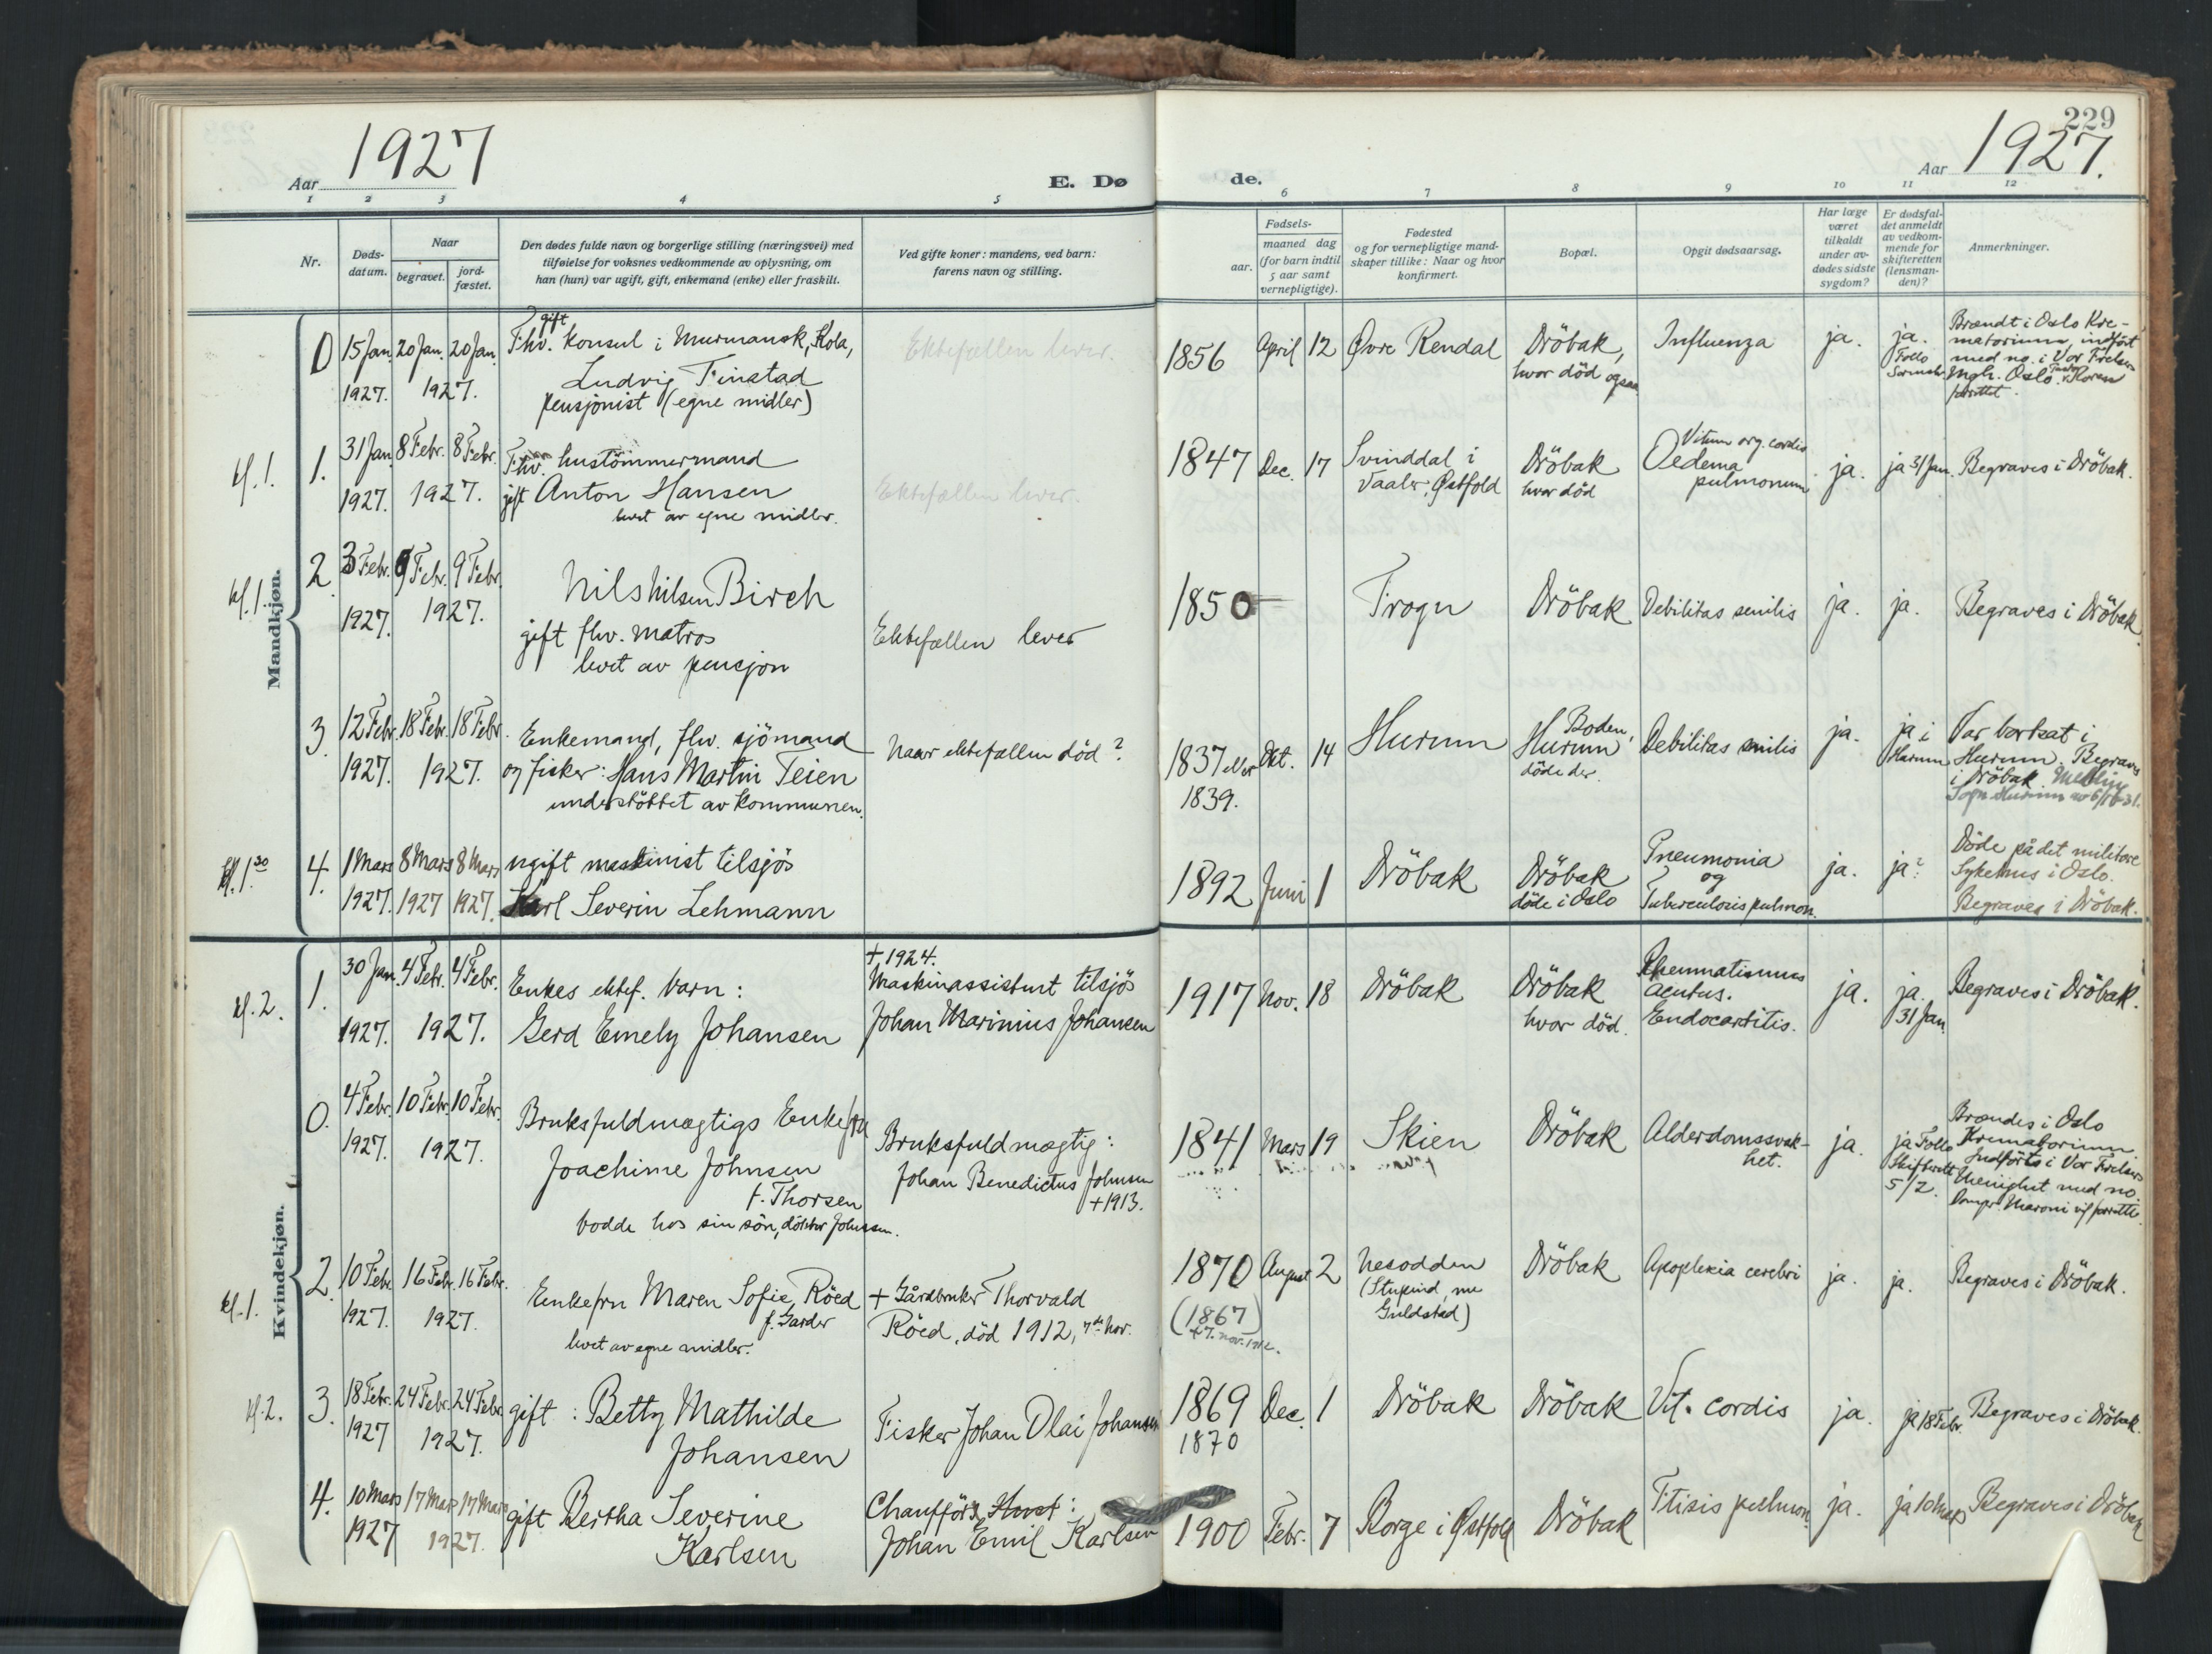 229
1927
1927.
Aar
E. Dø
de.
Aar
1 2 3 4 5 6 7 8 9 10 11 12
Nr.
Døds-
datum.
Naar
begravet.
jord-
fæstet.
Den dødes fulde navn og borgerlige stilling (næringsvei) med
tilføielse for voksnes vedkommende av oplysning, om
han (hun) var ugift, gift, enkemand (enke) eller fraskilt.
Ved gifte koner: mandens, ved barn:
farens navn og stilling.
Fødsels-
aar.
maaned dag
(for barn indtil
5 aar samt
vernepligtige).
Fødested
og for vernepligtige mand-
skaper tillike: Naar og hvor
konfirmert.
Bopæl.
Opgit dødsaarsag.
Har læge
været
tilkaldt
under av-
dødes sidste
sygdom?
Er dødsfal-
det anmeldt
av vedkom-
mende for
skifteretten
(lensman-
den)?
Anmerkninger.
Mandkjøn.
0
15 Jan. 20 Jan. 20 Jan.
1927. 1927.
gift
Fhv. konsul i Murmansk, Kola,
Ludvig Finstad
pensjonist (egne midler)
Ektefællen lever.
1856 April 12
Øvre Rendal
Dröbak,
hvor död ogsaa
Influenza
ja.
ja.
Follo
Brændt i Oslo Kre-
matorium, indfört
med no. i Vor Frelsers
Mgh. Oslo.
kl. 1.
1.
31 Jan. 8 Febr. 8 Febr.
1927. 1927.
Fhv. hustömmermand
gift Anton Hansen
levet av egne midler.
Ektefællen lever.
1847 Dec. 17
Svinddal i
Vaaler, Østfold
Dröbak
hvor död
Vitium org. cordis
Oedema
pulmonum
ja.
ja 31 Jan.
Begraves i Dröbak.
kl. 1.
2
3 Febr. 9 Febr. 9 Febr.
1927. 1927.
Nils Nilsen Birch
gift fhv. matros
levet av pensjon
Ektefællen lever
1850
Frogn
Dröbak
Debilitas senilis
ja.
ja.
Begraves i Dröbak
3.
12 Febr. 18 Febr. 18 Febr.
1927. 1927.
Enkemand, fhv. sjömand
og fisker: Hans Martin Teien
understöttet av kommunen.
Naar ektefællen död?
1837 eller
1839.
Okt. 14
Hurum
Boden,
Hurum
döde der.
Debilitas senilis
ja.
ja i
Hurum
Var bortsat i
Hurum. Begraves
i Dröbak
kl. 1 30
4.
1 Mars 8 Mars 8 Mars
1927. 1927 1927.
ugift maskinist tilsjös
Karl Severin Lehmann
1892 Juni 1
Dröbak
Dröbak
döde i Oslo
Pneumonia
og
Tuberculosis pulmon.
ja.
ja?
Döde på det militære
Sykehus i Oslo.
Begraves i Dröbak.
Kvindekjøn.
kl. 2.
1.
30 Jan. 4 Febr. 4 Febr.
1927. 1927.
Enkes ektef. barn:
Gerd Emely Johansen
+ 1924.
Maskinassistent tilsjös
Johan Marinius Johansen
1917 Nov. 18
Dröbak
Dröbak
hvor död.
Rheumatismus
acutus.
Endocarditis.
ja.
ja.
31 Jan.
Begraves i Dröbak.
0.
4 Febr. 10 Febr. 10 Febr.
1927. 1927.
Bruksfuldmægtigs Enkefru
Joachime Johnsen
f. Thorsen
bodde hos sin sön, doktor Johnsen.
Bruksfuldmægtig:
Johan Benedictus Johnsen
+ 1913.
1841 Mars 19
Skien
Dröbak
Alderdomssvak-
het.
ja.
ja Follo
Skifterett
5/2.
Brændes i Oslo
Krematorium.
Indförts i Vor Frelsers
Menighet med no.
kl. 1.
2.
10 Febr. 16 Febr. 16 Febr.
1927. 1927.
Enkefru Maren Sofie Röed
f. Garder
levet av egne midler.
+ Gårdbruker Thorvald
Röed, död 1912, 7de Nov.
1870 August 2
(1867)
+ 7. nov. 1912.
Nesodden
(Stupind, nu
Guldstad)
Dröbak
Apoplexia cerebri
ja.
ja.
Begraves i Dröbak.
kl. 2.
3.
18 Febr. 24 Febr. 24 Febr.
1927 1927.
gift: Betty Mathilde
Johansen
Fisker Johan Olai Johansen
1869 Dec. 1
1870
Dröbak
Dröbak
Vit. cordis
ja.
ja 18 Febr.
Begraves i Dröbak.
4.
10 Mars 17 Mars 17 Mars
1927 1927.
gift Bertha Severine
Karlsen
Chaufför
Johan Emil Karlsen
1900 Febr. 7
Borge i Østfold
Dröbak
Ftisis pulmon.
ja.
ja 10 Mars
Begraves i Dröbak